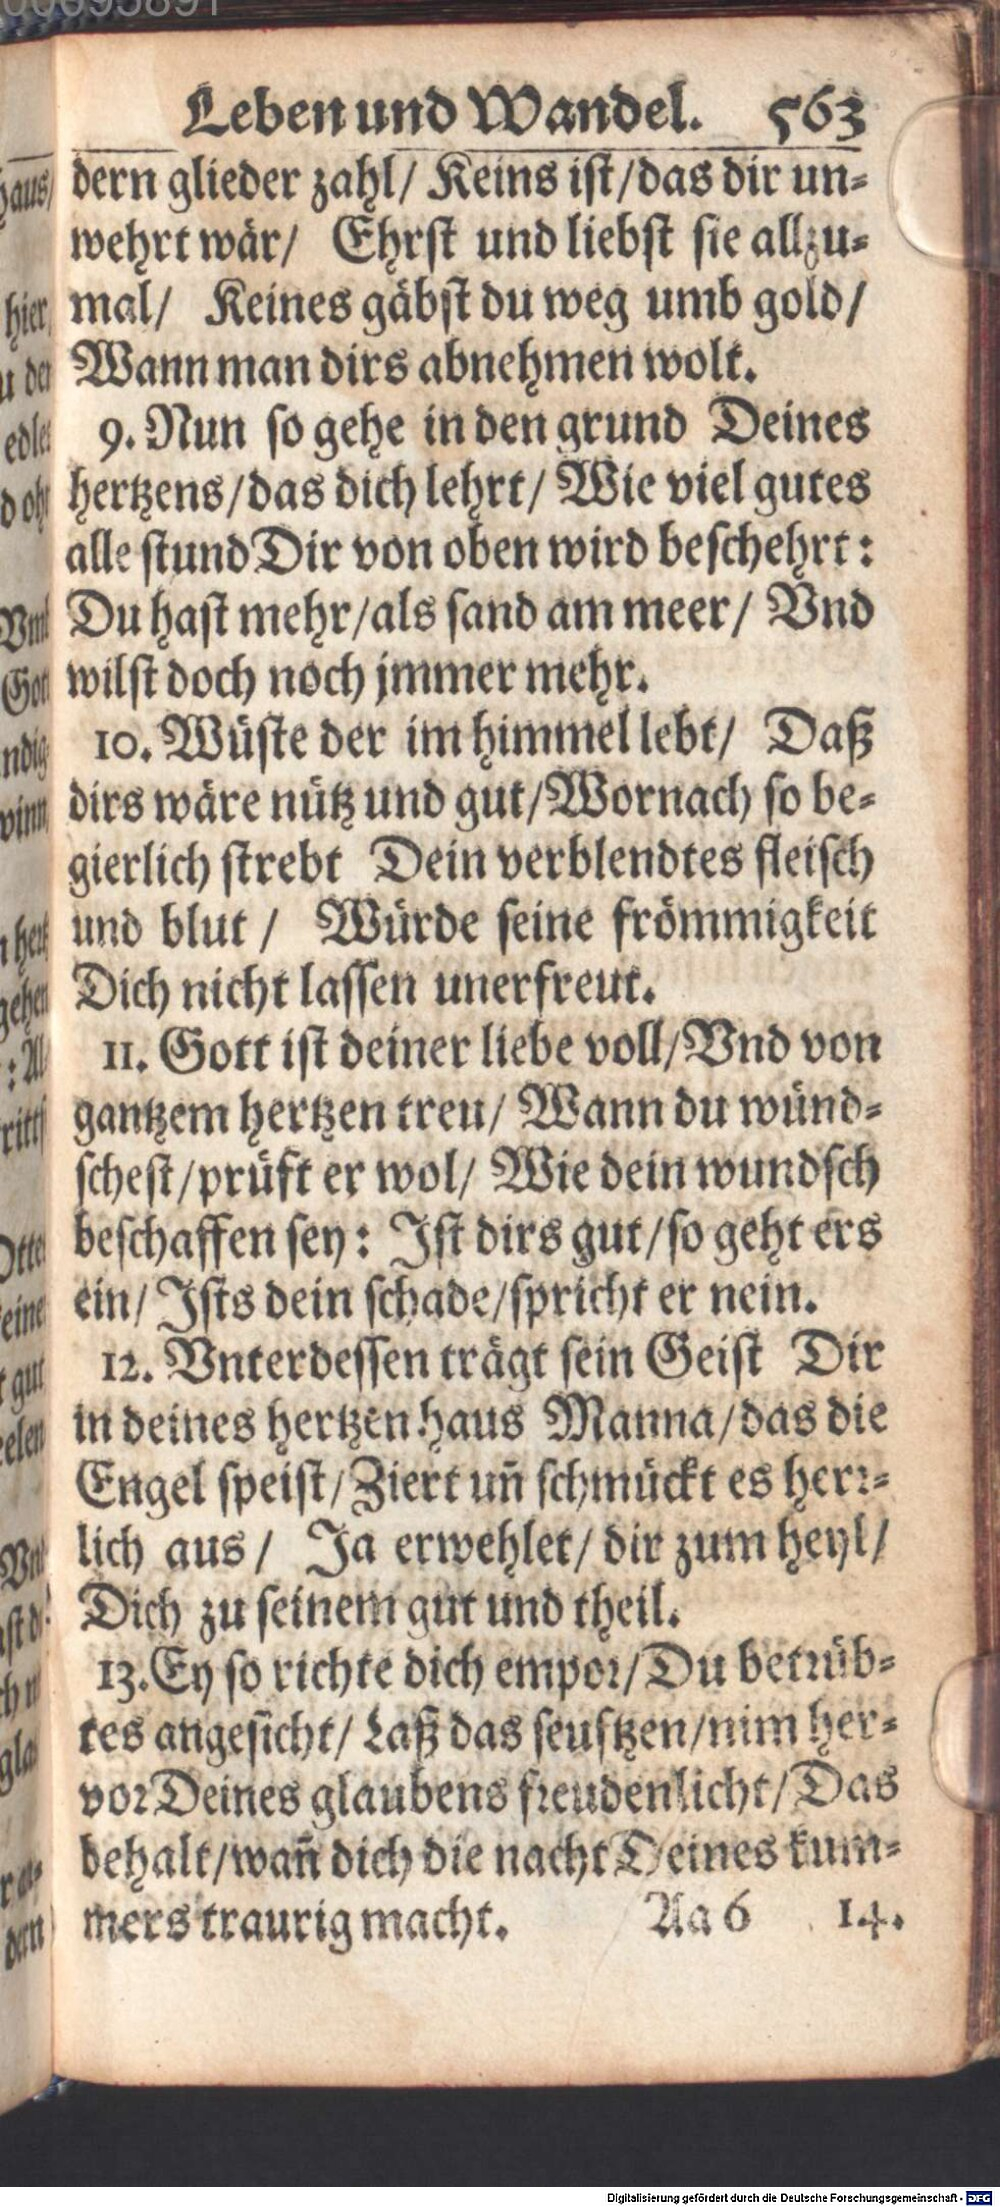 Leben und Wandel. 563
dern glieder zahl/ Keins ist/das dir un-
wehrt wär/ Ehrst und liebst sie allzu-
mal/ Keines gäbst du weg umb gold/
Wann man dirs abnehmen wolt.
9. Nun so gehe in den grund Deines
hertzens/das dich lehrt/ Wie viel gutes
alle stund Dir von oben wird beschehrt:
Du hast mehr/als sand am meer/ Vnd
wilst doch noch jmmer mehr.
10. Wüste der im himmel lebt/ Daß
dirs wäre nütz und gut/Wornach so be-
gierlich strebt Dein verblendtes fleisch
und blut/ Würde seine frömmigkeit
Dich nicht lassen unerfreut.
11. Gott ist deiner liebe voll/Vnd von
gantzem hertzen treu/ Wann du wünd-
schest/prüft er wol/ Wie dein wundsch
beschaffen sey: Ist dirs gut/so geht ers
ein/ Ists dein schade/spricht er nein.
12. Vnterdessen trägt sein Geist Dir
in deines hertzen haus Manna/das die
Engel speist/Ziert uñ schmückt es herr-
lich aus/ Ja erwehlet/ dir zum heyl/
Dich zu seinem gut und theil.
13. Ey so richte dich empor/Du betrüb-
tes angesicht/ Laß das seuftzen/nim her-
vor Deines glaubens freudenlicht/Das
behalt/wañ dich die nacht Deines kum-
mers traurig macht. Aa 6 14.
Digitalisierung gefördert durch die Deutsche Forschungsgemeinschaft - DFG